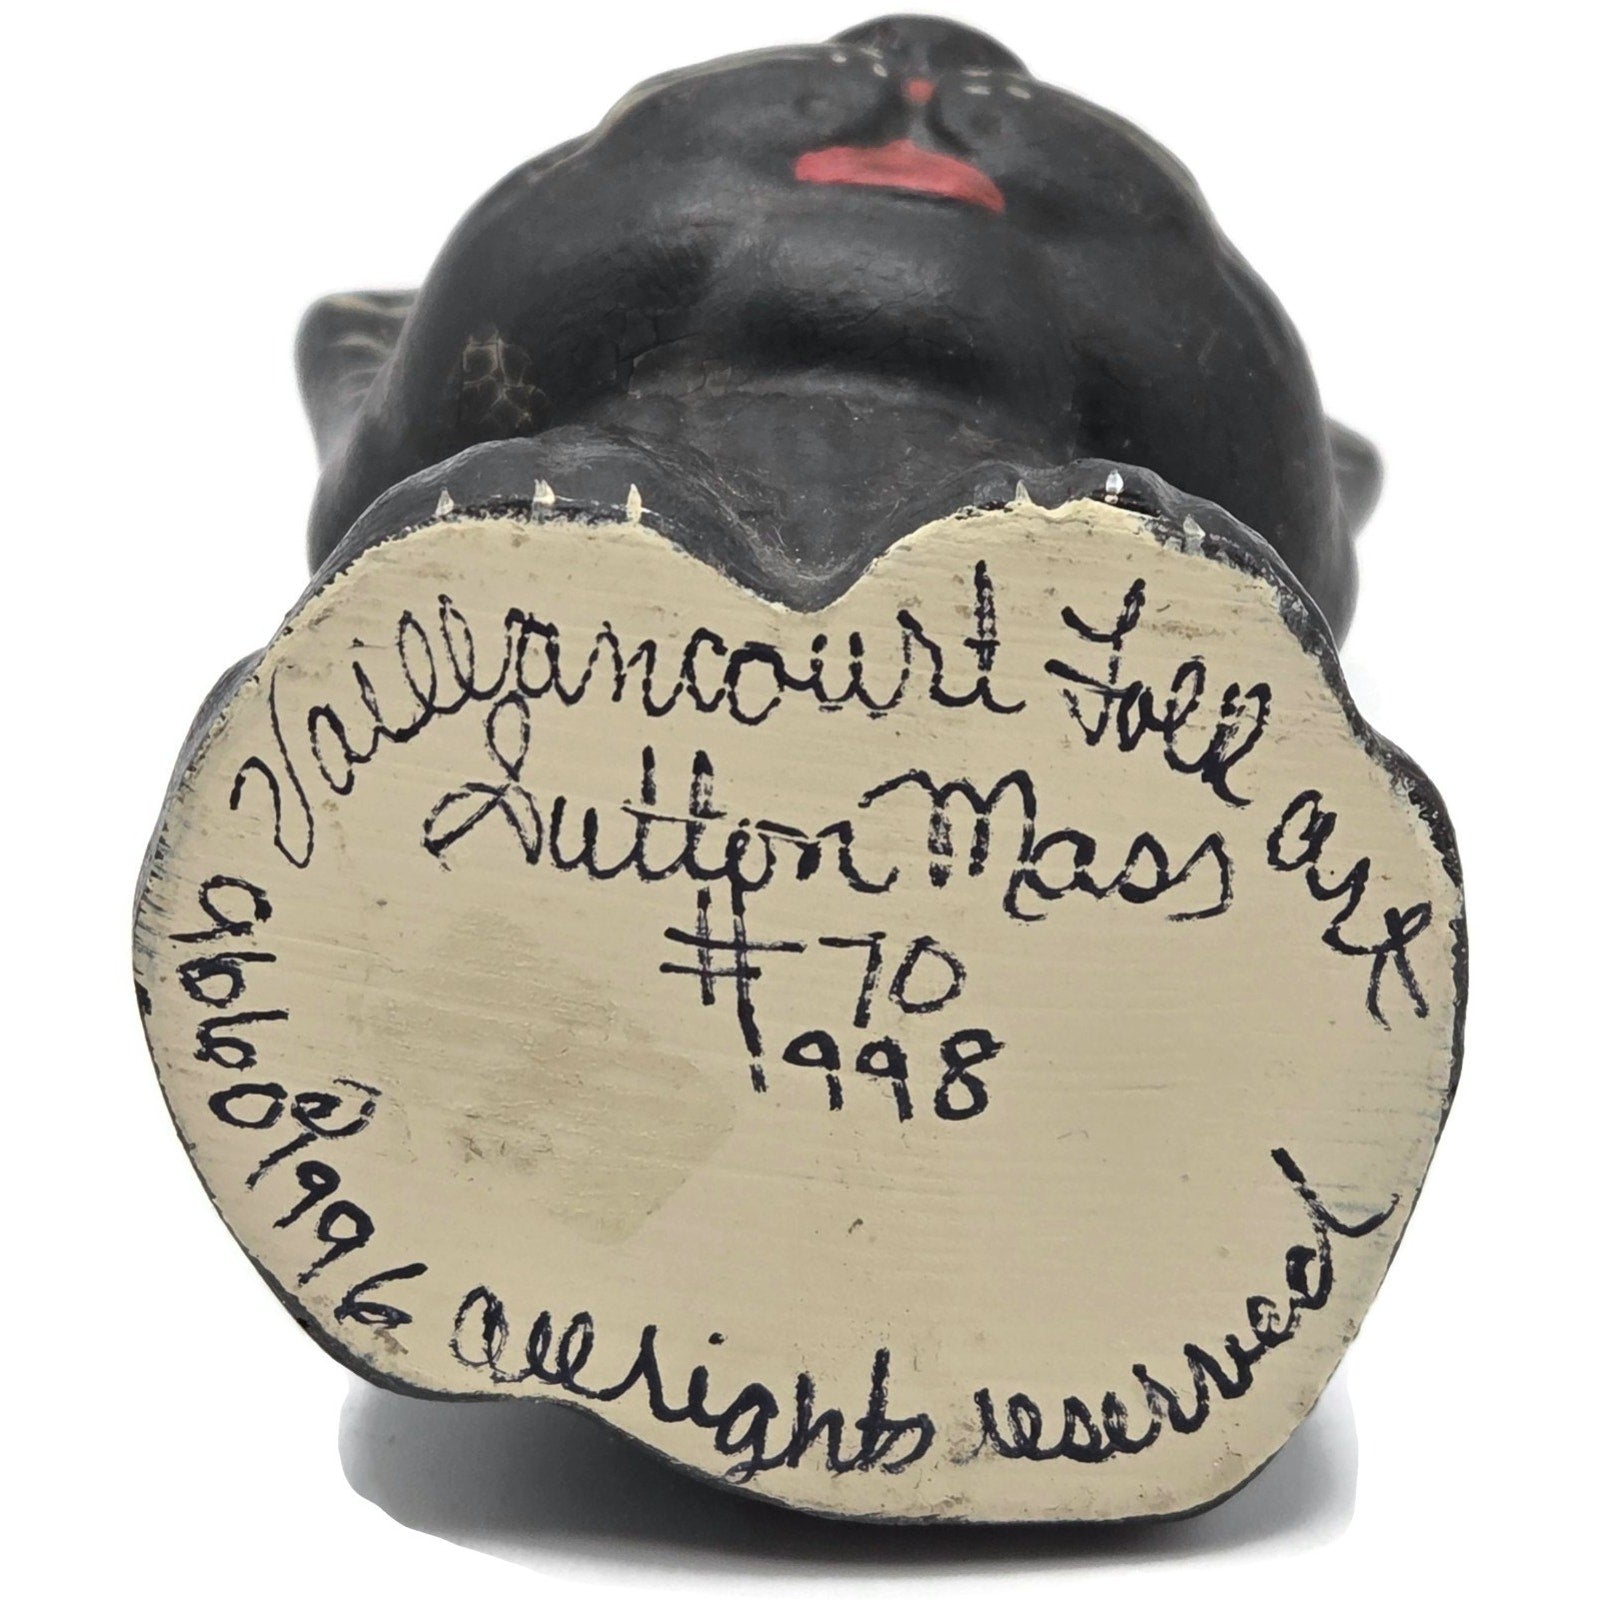 Vaillancourt Folk Art
Sutton Mass
#70
1998
©1996 All rights reserved